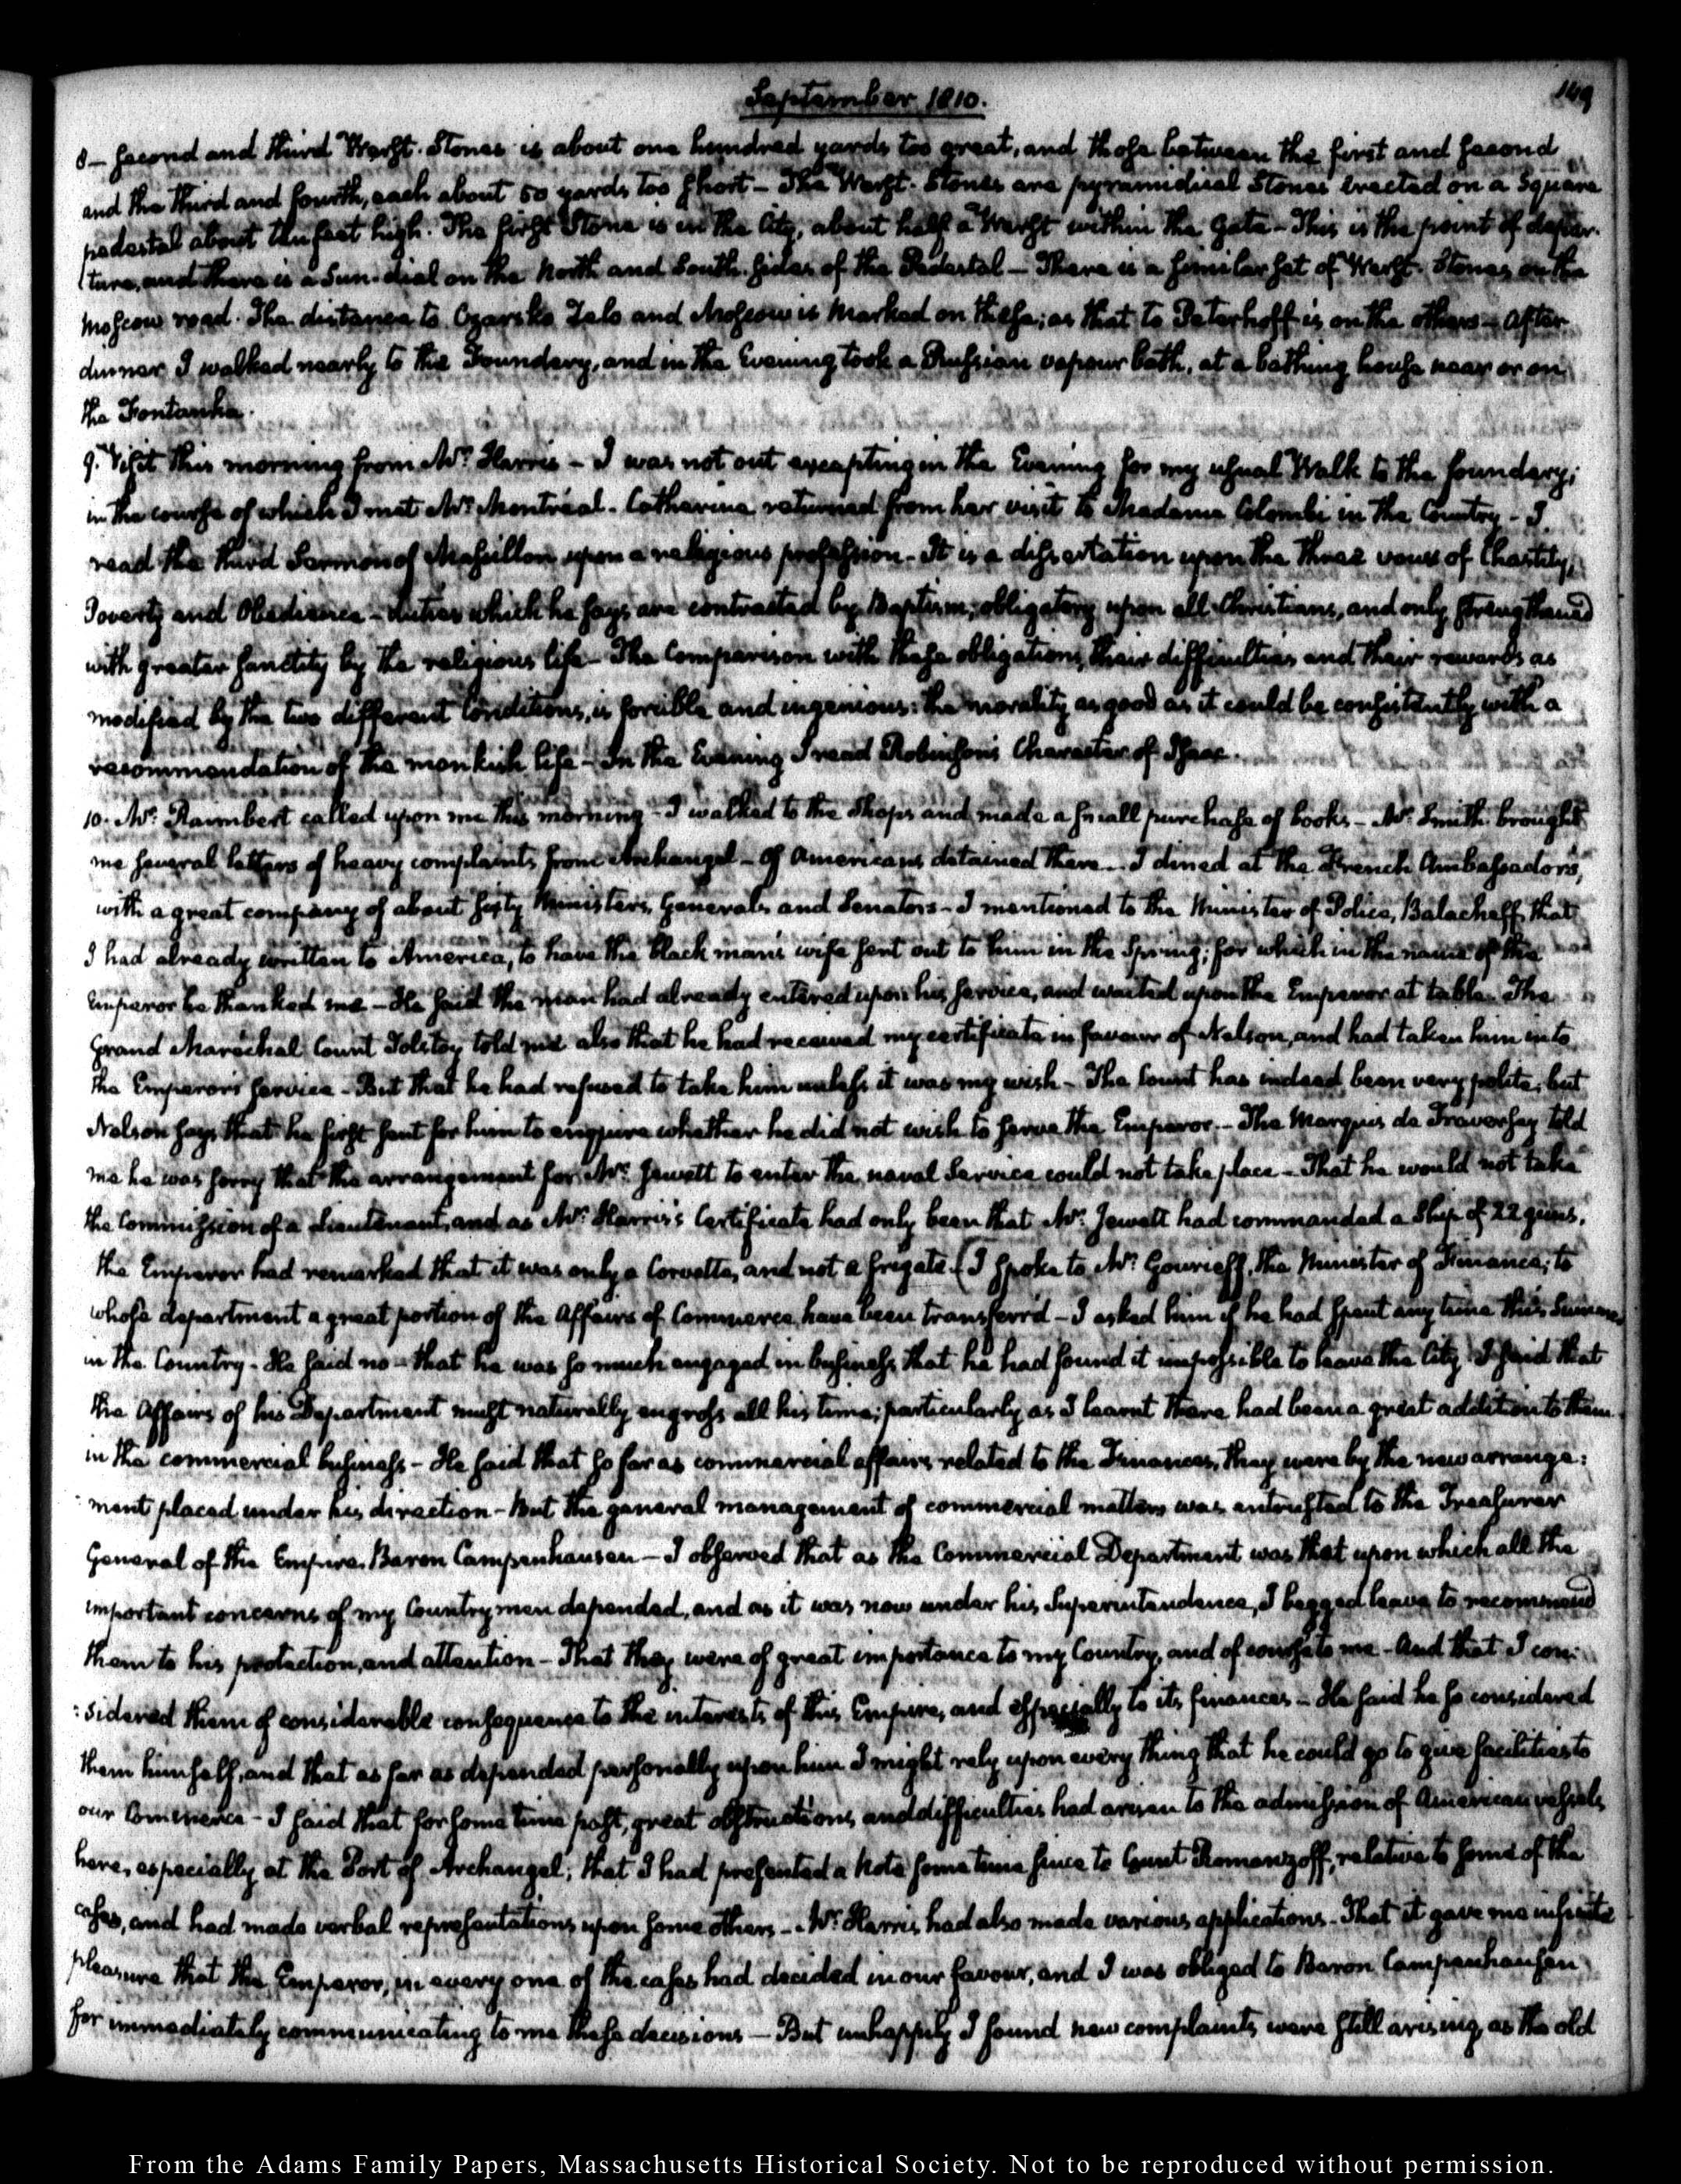 September 1810.
149
8— second and third Werst-Stones is about one hundred yards too great, and those between the first and second
and the third and fourth, each about 50 yards too short— The Werst-Stones are pyramidical Stones erected on a square
pedestal about ten feet high. The first Stone is in the City, about half a Werst within the gate— This is the point of depar-
ture, and there is a Sun-dial on the North and South sides of the Pedestal— There is a similar set of Werst-Stones on the
Moscow road. The distance to Czarsko Zelo and Moscow is marked on these; as that to Peterhoff is on the others— After
dinner I walked nearly to the Foundery, and in the Evening took a Russian vapour bath, at a bathing house near or on
the Fontanka.
9. Visit this morning from Mr: Harris— I was not out excepting in the Evening for my usual Walk to the foundery;
in the course of which I met Mr: Montréal. Catherine returned from her visit to Madame Colombi in the Country— I
read the third Sermon of Massillon upon a religious profession— It is a dissertation upon the three vows of Chastity,
Poverty and Obedience— duties which he says are contracted by Baptism; obligatory upon all Christians, and only strengthened
with greater sanctity by the religious life— The Comparison with these obligations, their difficulties and their rewards as
modified by the two different Conditions, is forcible and ingenious: the morality as good as it could be consistently with a
recommendation of the monkish life— In the Evening I read Robinson's Character of Isaac.
10. Mr: Raimbert called upon me this morning— I walked to the Shops and made a small purchase of books— Mr: Smith brought
me several letters of heavy complaints from Archangel— Of Americans detained there— I dined at the French Ambassador's,
with a great company of about sixty Ministers, Generals and Senators— I mentioned to the Minister of Police, Balacheff, that
I had already written to America, to have the black man's wife sent out to him in the Spring; for which in the name of the
Emperor he thanked me— He said the man had already entered upon his service, and waited upon the Emperor at table. The
Grand Maréchal Count Tolstoy told me also that he had received my certificate in favour of Nelson, and had taken him into
the Emperor's service— But that he had refused to take him unless it was my wish— The Count has indeed been very polite; but
Nelson says that he first sent for him to enquire whether he did not wish to serve the Emperor— The Marquis de Traversay told
me he was sorry that the arrangement for Mr: Jewett to enter the naval Service could not take place— That he would not take
the Commission of a Lieutenant, and as Mr: Harris's Certificate had only been that Mr: Jewett had commanded a Ship of 22 guns,
the Emperor had remarked that it was only a Corvette, and not a frigate. (I spoke to Mr: Gourieff, the Minister of Finance; to
whose department a great portion of the Affairs of Commerce have been transferr'd— I asked him if he had spent any time this Summer
in the Country— He said no— that he was so much engaged in business, that he had found it impossible to leave the City. I said that
the Affairs of his Department must naturally engross all his time; particularly as I learnt there had been a great addition to them
in the commercial business— He said that so far as commercial affairs related to the Finances, they were by the new arrange:
ment placed under his direction— But the general management of commercial matters was entrusted to the Treasurer
General of the Empire, Baron Campenhausen— I observed that as the Commercial Department was that upon which all the
important concerns of my Countrymen depended, and as it was now under his Superintendence, I begged leave to recommend
them to his protection, and attention— That they were of great importance to my Country, and of course to me— And that I con:
:sidered them of considerable consequence to the interests of this Empire, and especially to its finances— He said he so considered
them himself, and that as far as depended personally upon him I might rely upon every thing that he could go to give facilities to
our Commerce— I said that for some time past, great obstructions and difficulties had arisen to the admission of American vessels
here, especially at the Port of Archangel; that I had presented a Note some time since to Count Romanzoff, relative to some of the
cases, and had made verbal representations upon some others— Mr: Harris had also made various applications— That it gave me infinite
pleasure that the Emperor, in every one of the cases had decided in our favour, and I was obliged to Baron Campenhausen
for immediately communicating to me these decisions— But unhappily I found new complaints were still arising, as the old
From the Adams Family Papers, Massachusetts Historical Society. Not to be reproduced without permission.